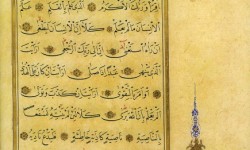 وَرَبُّكَ الْأَكْرَمُ الَّذِي عَلَّمَ بِالْقَلَمِ عَلَّمَ
الْإِنْسَانَ مَا لَمْ يَعْلَمْ كَلَّا إِنَّ الْإِنْسَانَ لَيَطْغَى
أَنْ رَآهُ اسْتَغْنَى إِنَّ إِلَى رَبِّكَ الرُّجْعَى أَرَأَيْتَ
الَّذِي يَنْهَى عَبْدًا إِذَا صَلَّى أَرَأَيْتَ إِنْ كَانَ عَلَى الْهُدَى
أَوْ أَمَرَ بِالتَّقْوَى أَرَأَيْتَ إِنْ كَذَّبَ وَتَوَلَّى
أَلَمْ يَعْلَمْ بِأَنَّ اللَّهَ يَرَى كَلَّا لَئِنْ لَمْ يَنْتَهِ لَنَسْفَعًا
بِالنَّاصِيَةِ نَاصِيَةٍ كَاذِبَةٍ خَاطِئَةٍ فَلْيَدْعُ نَادِيَهُ